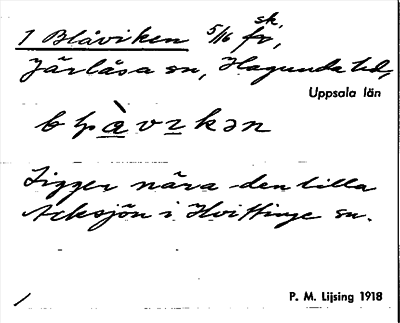 1 Blåviken 5/16 fr sk.,
Järlåsa sn, Hagunda hd,
Uppsala län
Ligger nära den lilla
Acksjön i Hvittinge sn.
P. M. Lijsing 1918